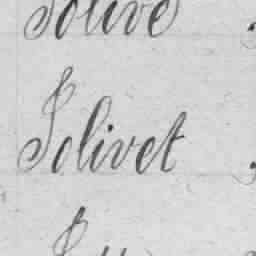 Jolive
Jolivet